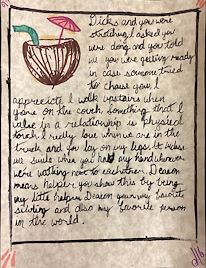 and you were
stretching I asked you
were doing and you told
me you were getting ready
in case someone tried
to chase you. I
appreciate I walk upstairs when
your on the couch. Something that I
also in a relationship is physical
touch I really love when we are in the
truck and for lay on my legs. It makes
me smile when you hold my hand whenever
were walking next to eachother. Deacon
means helper you show this by being
my little helper. Deacon your my favorite
sibling and also my favorite person
in the world.